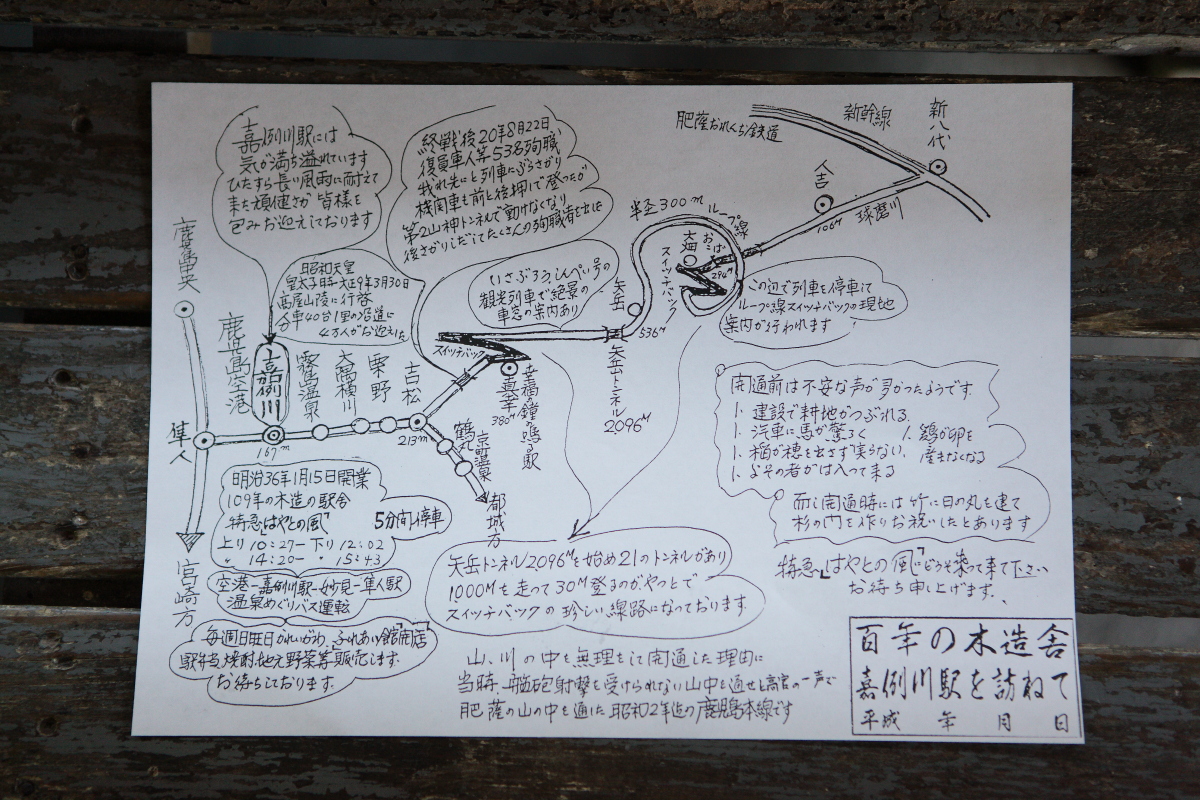 嘉例川駅には
気が満ち溢れています
ひたすら長い風雨に耐えて
来た頑健さが 皆様を
包みお迎えしております
終戦後20年8月22日
復員軍人等538殉職
我れ先にと列車にぶらさがり
機関車も前と後押しで登ったが
第2山神トンネルで動けなくなり
後さがりしだしてたくさんの殉職者を出した
肥薩おれんぢ鉄道
新幹線
新八代
人吉
106m
球磨川
半径300m ループ線
大畑
おこば
294m
スイッチバック
この辺で列車を停車して
ループ線スイッチバックの現地
案内が行われます
昭和天皇
皇太子時 大正9年3月30日
高尾山陵に行啓
分車40台1里の沿道に
4万人がお迎えした
いさぶろう、しんぺい号の
観光列車で絶景の
車窓の案内あり
矢岳
536m
矢岳トンネル
2096M
スイッチバック
真幸
380m
幸福の鐘の鳴る駅
鹿児島中央
鹿児島空港
嘉例川
霧島温泉
大隅横川
栗野
吉松
隼人
167m
213m
鶴丸
京町温泉
都城方
宮崎方
明治36年1月15日開業
109年の木造の駅舎
特急「はやとの風」 5分間停車
上り 10:27− 下り 12:02
〃 14:20− 〃 15:43
空港−嘉例川駅−妙見−隼人駅
温泉めぐりバス運転
毎週日旺日かれいがわ、ふれあい館「開店」
駅弁、焼酎、地元野菜等販売します。
お待ちしております。
矢岳トンネル2096Mを始め21のトンネルがあり
1000Mを走って30M登るのがやっとで
スイッチバックの珍しい線路になっております
開通前は不安な声が多かったようです
1. 建設で耕地がつぶれる。
1. 汽車に馬が驚ろく 1. 鶏が卵を
1. 稲が穂を出さず実らない、 産まなくなる
1. よその者がは入って来る
而し開通時には竹に日の丸を建て
杉の門を作りお祝いしたとあります
特急「はやとの風」にどうぞ乗って来て下さい
お待ち申し上げます。
山、川の中を無理をして開通した理由に
当時、艦砲射撃を受けられない山中を通せと高官の一声で
肥薩の山の中を通した昭和2年迄の鹿児島本線です
百年の木造舎
嘉例川駅を訪ねて
平成 年 月 日